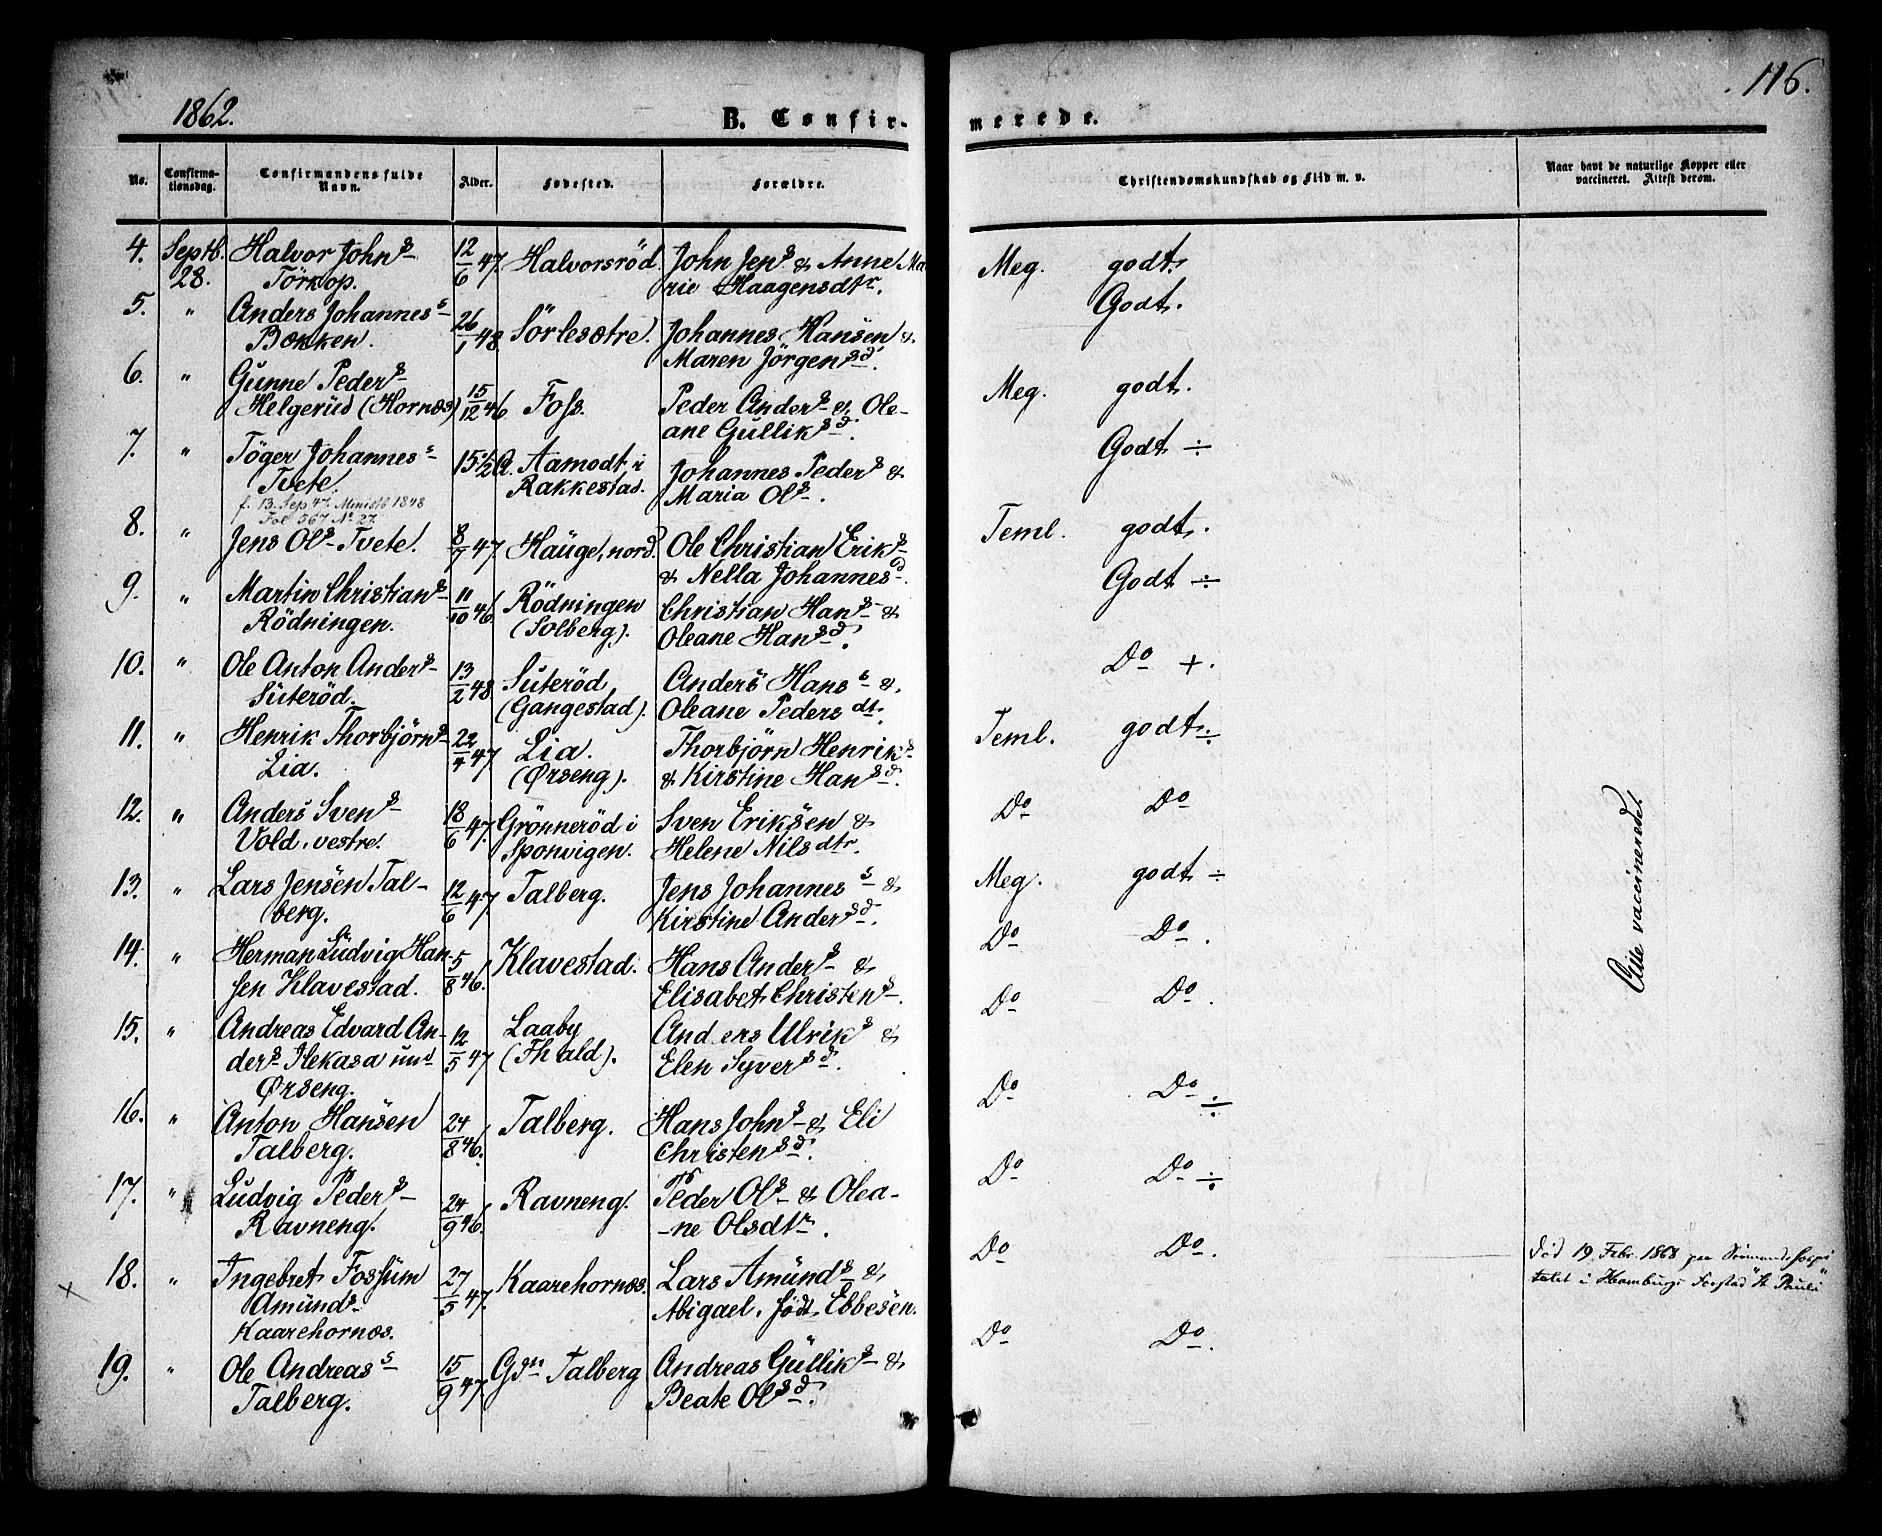 1862.
116.
B. Confirmerede.
No. Confirmationsdag. Confirmandens fulde Navn. Alder. Fødested. Forældre. Christendomskundskab og Flid m. v. Naar havt de naturlige Kopper eller vaccineret. Attest derom.
4. Septb. 28. Halvor Johns Törkop. 12/6 47. Halvorsröd. John Jens & Anne Marie Haagensdtr. Meg. godt.
5. " Anders Johanness Bækken. 26/1 48. Sörlesætre. Johannes Hansen & Maren Jörgensd. Godt.
6. " Gunne Peders Helgerud (Hornæs) 15/12 46 Foss. Peder Anders & Oleane Gulliksd. Meg. godt.
7. " Töger Johanness Tvete. 15 1/2 A. Aamodt i Rakkestad. Johannes Peders & Maria Ols. Godt ÷
f. 13. Sep 47. Ministb 1848
Fol 567 No 27.
8. " Jens Ols Tvete. 8/7 47. Hauge, nord. Ole Christian Eriks & Nella Johannesd. Teml. godt.
9. " Martin Christians Rödningen. 11/10 46. Rödningen (Solberg). Christian Hans & Oleane Hansd. Godt ÷
10. " Ole Anton Anders Suteröd. 13/2 48 Suteröd (Gangestad). Anders Hanss & Oleane Pedersdt. Do +.
11. " Henrik Thorbjörns Lia. 22/4 47 Lia. (Ørseng). Thorbjörn Henriks & Kirstine Hansd. Teml. godt ÷
12. " Anders Svens Vold, vestre. 18/6 47. Grönneröd i Sponvigen. Sven Eriksen & Helene Nilsdtr. Do Do
13. " Lars Jensen Talberg. 12/6 47. Talberg. Jens Johanness & Kirstine Andersd. Meg. godt ÷
14. " Herman Ludvig Hansen Klavestad. 5/8 46. Klavestad. Hans Anders & Elisabet Christens. Do Do.
15. " Andreas Edvard Anders Ilekasa und Ørseng. 12/5 47 Laaby (Thald). Anders Ulriks & Elen Syversd. Do Do.
16. " Anton Hansen Talberg. 24/8 46. Talberg. Hans Johns & Eli Christensd. Do Do. ÷
17. " Ludvig Peders Ravneng. 24/9 46. Ravneng. Peder Ols & Oleane Olsdtr. Do Do ÷
18. " Ingebret Fossum Amunds Kaarehornæs. 27/5 47. Kaarehornæs. Lars Amunds & Abigael, født Ebbesen. Do Do.
Död 19. Febr. 1868 paa Sömandshospitalet i Hamburgs Forstad "St Pauli"
19. " Ole Andreass Talberg. 15/9 47. Gdn Talberg Andreas Gulliks & Beate Olsd. Do Do.
Alle vaccinerede.